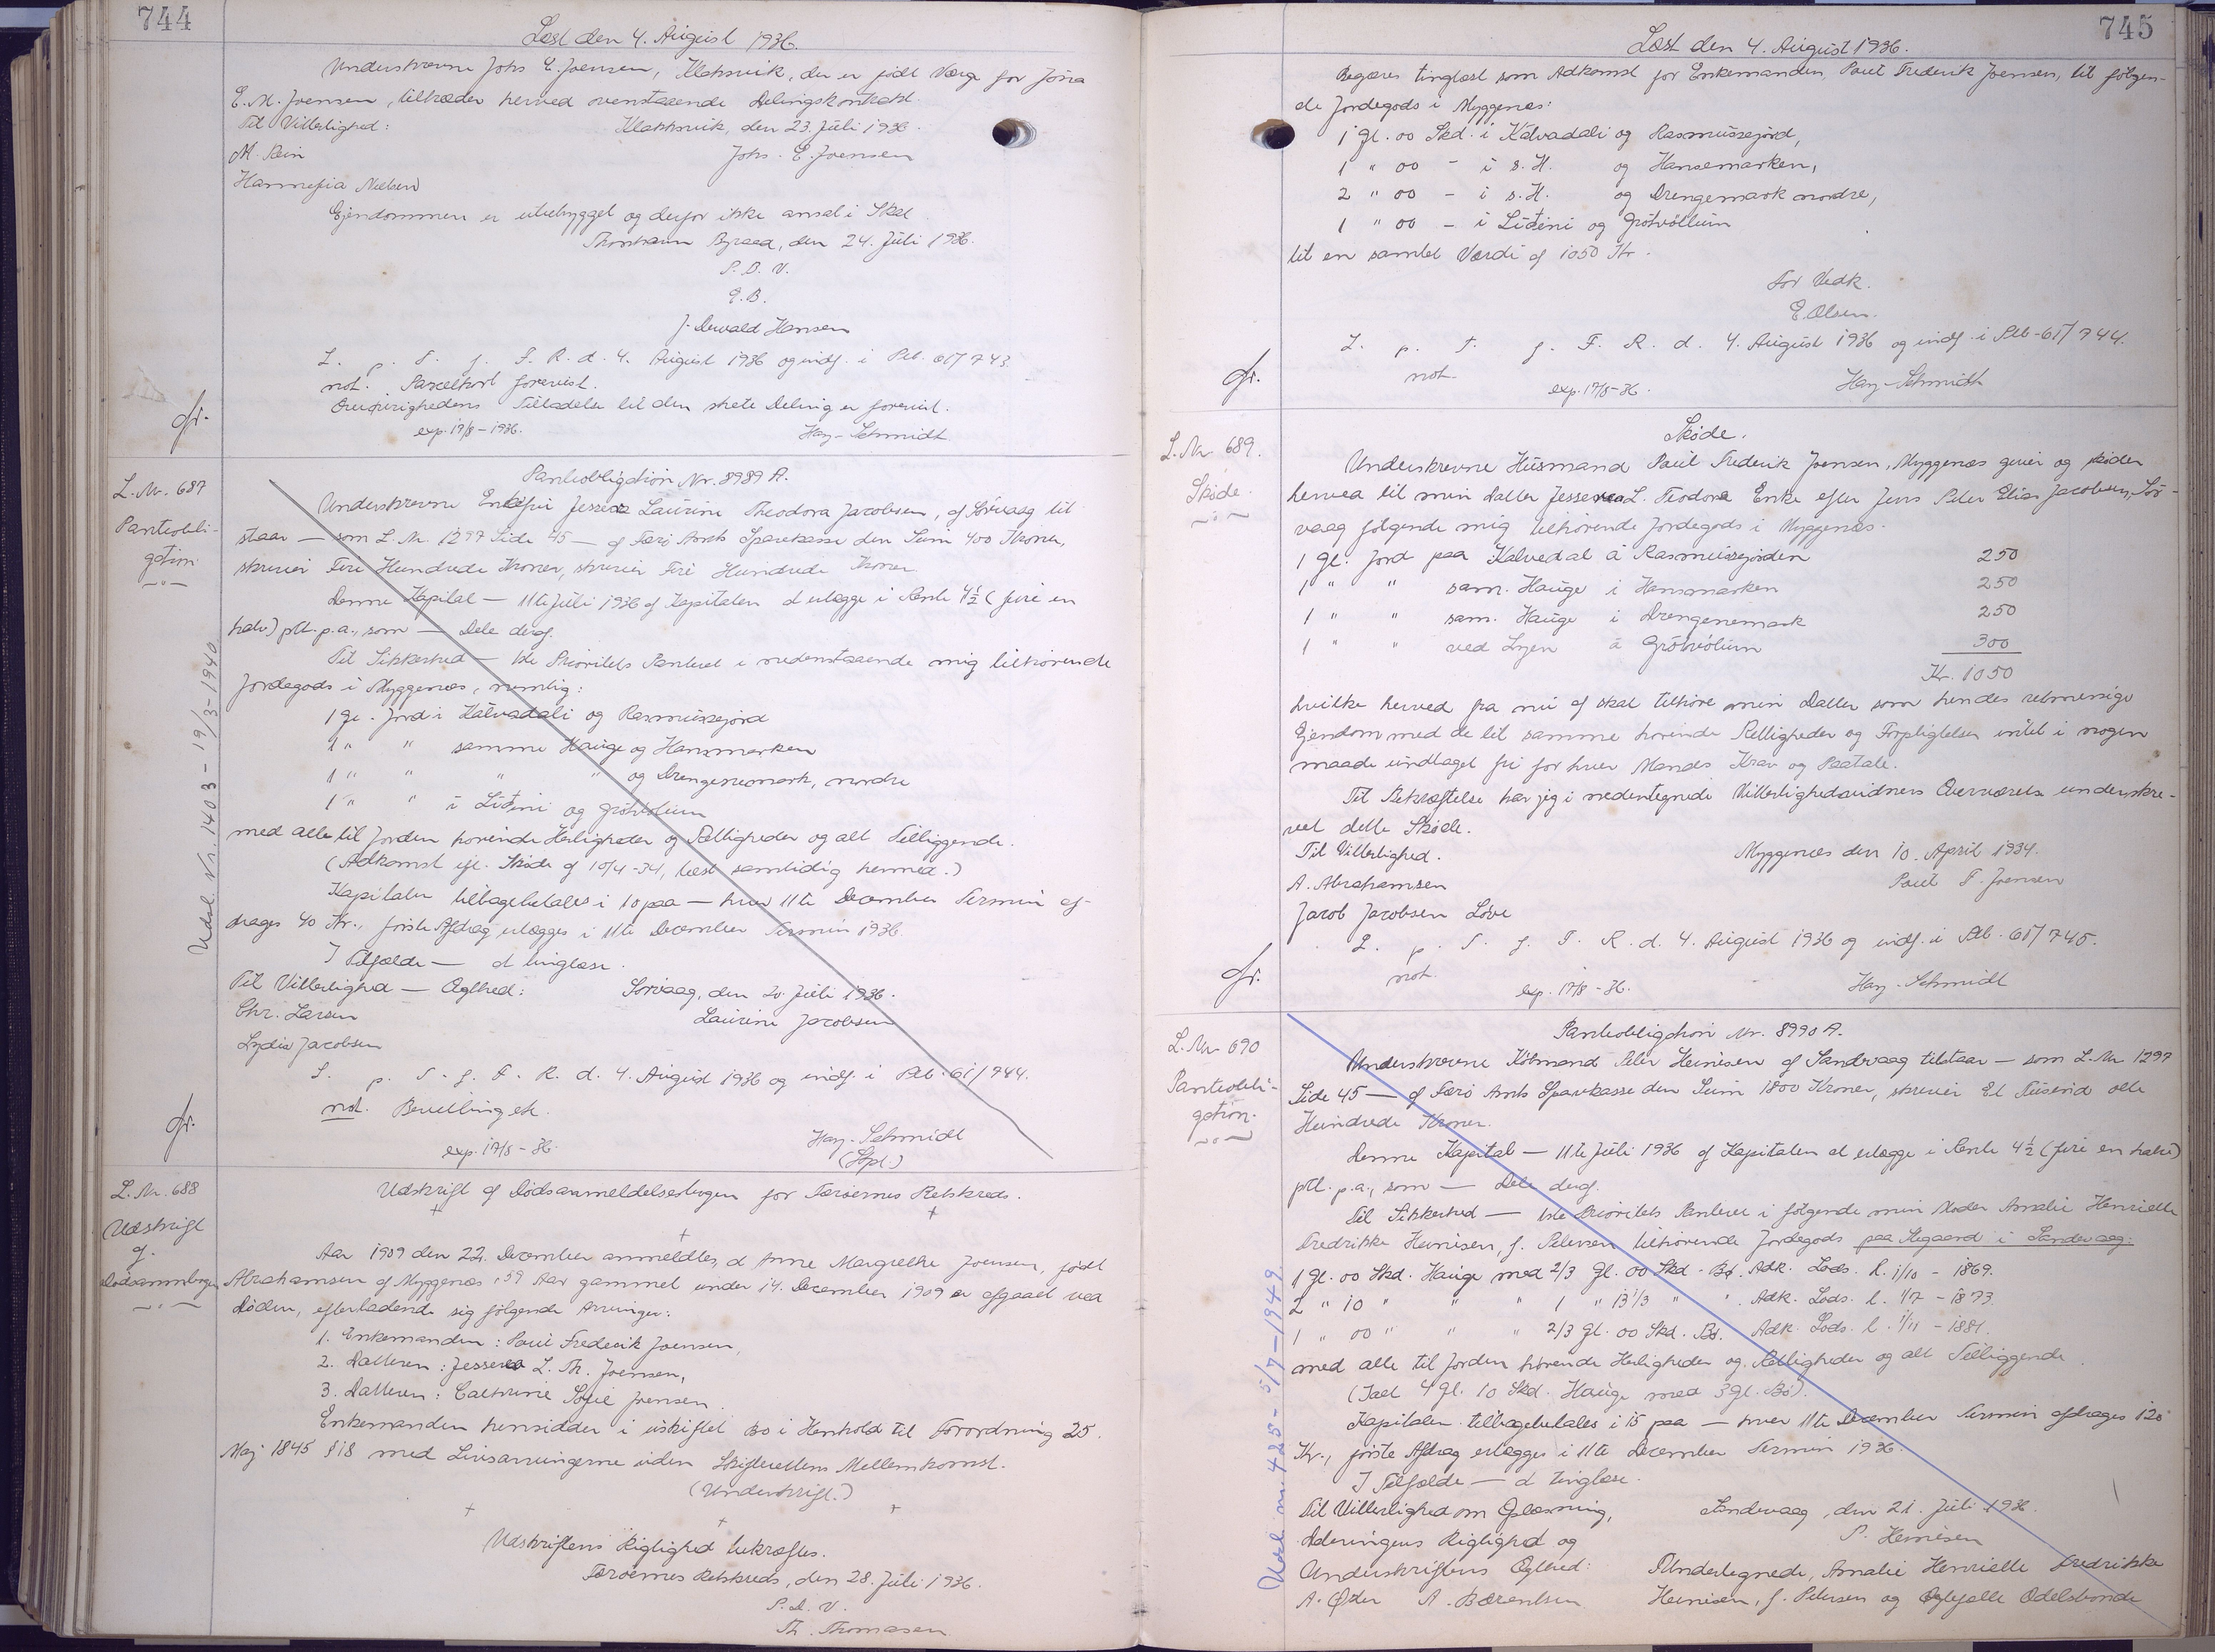 744
Læst den 4. August 1936.
Underskrevne Johs E. Joensen, Klaksvik, der er født Værge for Jóna
E. M. Joensen, tiltræder herved ovenstaaende Delingskontrakt.
Til Vitterlighed: Klaksvik, den 23. Juli 1936.
M. Rein Johs. E. Joensen
Hannefia Nielsen
Ejendommen er utbebygget og derfor ikke ansat i Skat
Thorshavn Byraad, den 24. Juli 1936.
P. B. V.
E. B.
J. Dewald Hansen
L. p. T. f. F. R. d. 4. August 1936 og indf. i Ptb. 61/743.
not. Parcelkort forevist.
Øvrighedens Tilladelse til den skete Deling er forevist.
Gr. exp. 17/8-1936. Hay-Schmidt
L. Nr. 687
Pantobli-
gation
Pantobligation Nr. 8989 A.
Underskrevne Enkefru Jessera Laurine Theodora Jacobsen, af Sørvaag til
staar — som L. Nr. 1297 Side 45 — af Færø Amts Sparekasse den Sum 400 Kroner,
skriver Fire Hundrede Kroner, skriver Fire Hundrede Kroner
Denne Kapital — 11te Juli 1936 af Kapitalen at erlægge i Rente 4½ (fire en
halv) pCt. p. a., som — Dele deraf.
Til Sikkerhed — 1ste Prioritets Panteret i nedenstaaende mig tilhørende
Jordegods i Myggenæs, nemlig:
1 Gl. Jord i Kálvadali og Rasmussejord
1 " " samme Hauge og Hansmarken
1 " " " " og Drengenemark, nordre
1 " " i Lídini og Grótvøllum
med alle til Jorden hørende Herligheder og Rettigheder og alt Tilliggende.
(Adkomst efl. Skøde af 10/4-34, læst samtidig hermed.)
Kapitalen tilbagebetales i 10 paa — hver 11te December Termin af-
drages 40 Kr., første Afdrag erlægges i 11te December Termin 1936.
I Tilfælde — at tinglæse.
Til Vitterlighed — Ægthed: Sørvaag, den 20. Juli 1936.
Chr. Larsen Laurine Jacobsen
Lydia Jacobsen
L. p. T. f. F. R. d. 4. August 1936 og indf. i Ptb. 61/744.
not. Bevilling etc.
Gr. exp. 17/8-36. Hay-Schmidt
(Stpl.)
Udsl. Nr. 1403 - 19/3-1940
L. Nr. 688
Udskrift
af
Dødsanmbogen
Udskrift af Dødsanmeldelsesbogen for Færøernes Retskreds.
Aar 1909 den 22. December anmeldtes, at Anne Margrethe Joensen, født
Abrahamsen af Myggenæs, 59 Aar gammel under 14. December 1909 er afgaaet ved
Døden, efterladende sig følgende Arvinger:
1. Enkemanden: Poul Frederik Joensen,
2. Datteren: Jessera L. Th. Joensen,
3. Datteren: Cathrine Sofie Joensen.
Enkemanden hensidder i uskiftet Bo i Henhold til Forordning 25.
Maj 1845 § 18 med Livsarvingerne uden Skifterettens Mellemkomst.
(Underskrift.)
Udskriftens Rigtighed bekræftes.
Færøernes Retskreds, den 28. Juli 1936.
P. D. V.
Th. Thomasen
745
Læst den 4. August 1936.
Begæres tinglæst som Adkomst for Enkemanden, Poul Frederik Joensen, til følgen-
de Jordegods i Myggenæs:
1 Gl. 00 Skd. i Kálvadali og Rasmussejord,
1 " 00 - i s. H. og Hansemarken,
2 " 00 - i s. H. og Drengemark nordre,
1 " 00 - i Lídini og Grótvøllum
til en samlet Værdi af 1050 Kr.
For Vedk.
E. Olsen.
L. p. T. f. F. R. d. 4. August 1936 og indf. i Ptb. 61/744.
Gr. not. exp. 17/8-36. Hay-Schmidt
L. Nr. 689.
Skøde.
Skøde.
Underskrevne Husmand Poul Frederik Joensen, Myggenæs giver og skøder
herved til min Datter Jessera L. Teodora Enke efter Jens Peter Elias Jacobsen, Sør-
vaag følgende mig tilhørende Jordegods i Myggenæs.
1 Gl. Jord paa Kalvedal á Rasmussejorden 250
1 " " sam. Hauge i Hansmarken 250
1 " " sam. Hauge i Drengenemark 250
1 " " ved Lyen á Grótvólum 300
Kr. 1050
hvilke herved fra nu af skal tilhøre min Datter som hendes retmessige
Ejendom med de til samme hørende Rettigheder og Forpligtelser intet i nogen
maade undtaget fri for hver Mands Krav og Paatale.
Til Bekræftelse har jeg i nedentegnede Vitterlighedsvidners Overværelse underskre-
vet dette Skøde.
Til Vitterlighed. Myggenæs den 10. April 1934.
A. Abrahamsen Poul F. Joensen
Jacob Jacobsen Løve
L. p. T. f. F. R. d. 4. August 1936 og indf. i Ptb. 61/745.
Gr. not. exp. 17/8-36. Hay-Schmidt
L. Nr. 690
Pantobli-
gation.
Pantobligation Nr. 8990 A.
Underskrevne Købmand Peter Heinesen af Sandevaag tilstaar — som L. Nr 1297
Side 45 — af Færø Amts Sparekasse den Sum 1800 Kroner, skriver Et Tusend otte
Hundrede Kroner.
Denne Kapital — 11te Juli 1936 af Kapitalen at erlægge i Rente 4½ (fire en halv)
pCt. p. a., som — Dele deraf.
Til Sikkerhed — 1ste Prioritets Panteret i følgende min Moder Amalie Henriette
Fredrikke Heinesen, f. Petersen tilhørende Jordegods paa Stegaard i Sandevaag:
1 Gl. 00 Skd. Hauge med 2/3 Gl. 00 Skd. Bø. Adk. Lods. l. 1/10 - 1869.
2 " 10 " " " 1 " 13 1/3 " " . Adk. Lods. l. 1/7 - 1873
1 " 00 " " " 2/3 Gl. 00 Skd. Bø. Adk. Lods. l. 1/11 - 1881.
med alle til Jorden hørende Herligheder og Rettigheder og alt Tilliggende.
(Ialt 4 Gl. 10 Skd. Hauge med 3 Gl. Bø).
Kapitalen tilbagebetales i 15 paa — hver 11te December Termin afdrages 120
Kr., første Afdrag erlægges i 11te December Termin 1936.
I Tilfælde — at tinglæse.
Til Vitterlighed om Oplæsning, Sandevaag, den 21. Juli 1936.
Dateringens Rigtighed og P. Heinesen
Underskriftens Ægthed: Undertegnede, Amalie Henriette Fredrikke
A. Øster A. Bærentsen Heinesen, f. Petersen og Ægtefælle Odelsbonde
Udsl. nr. 425 - 5/7-1949